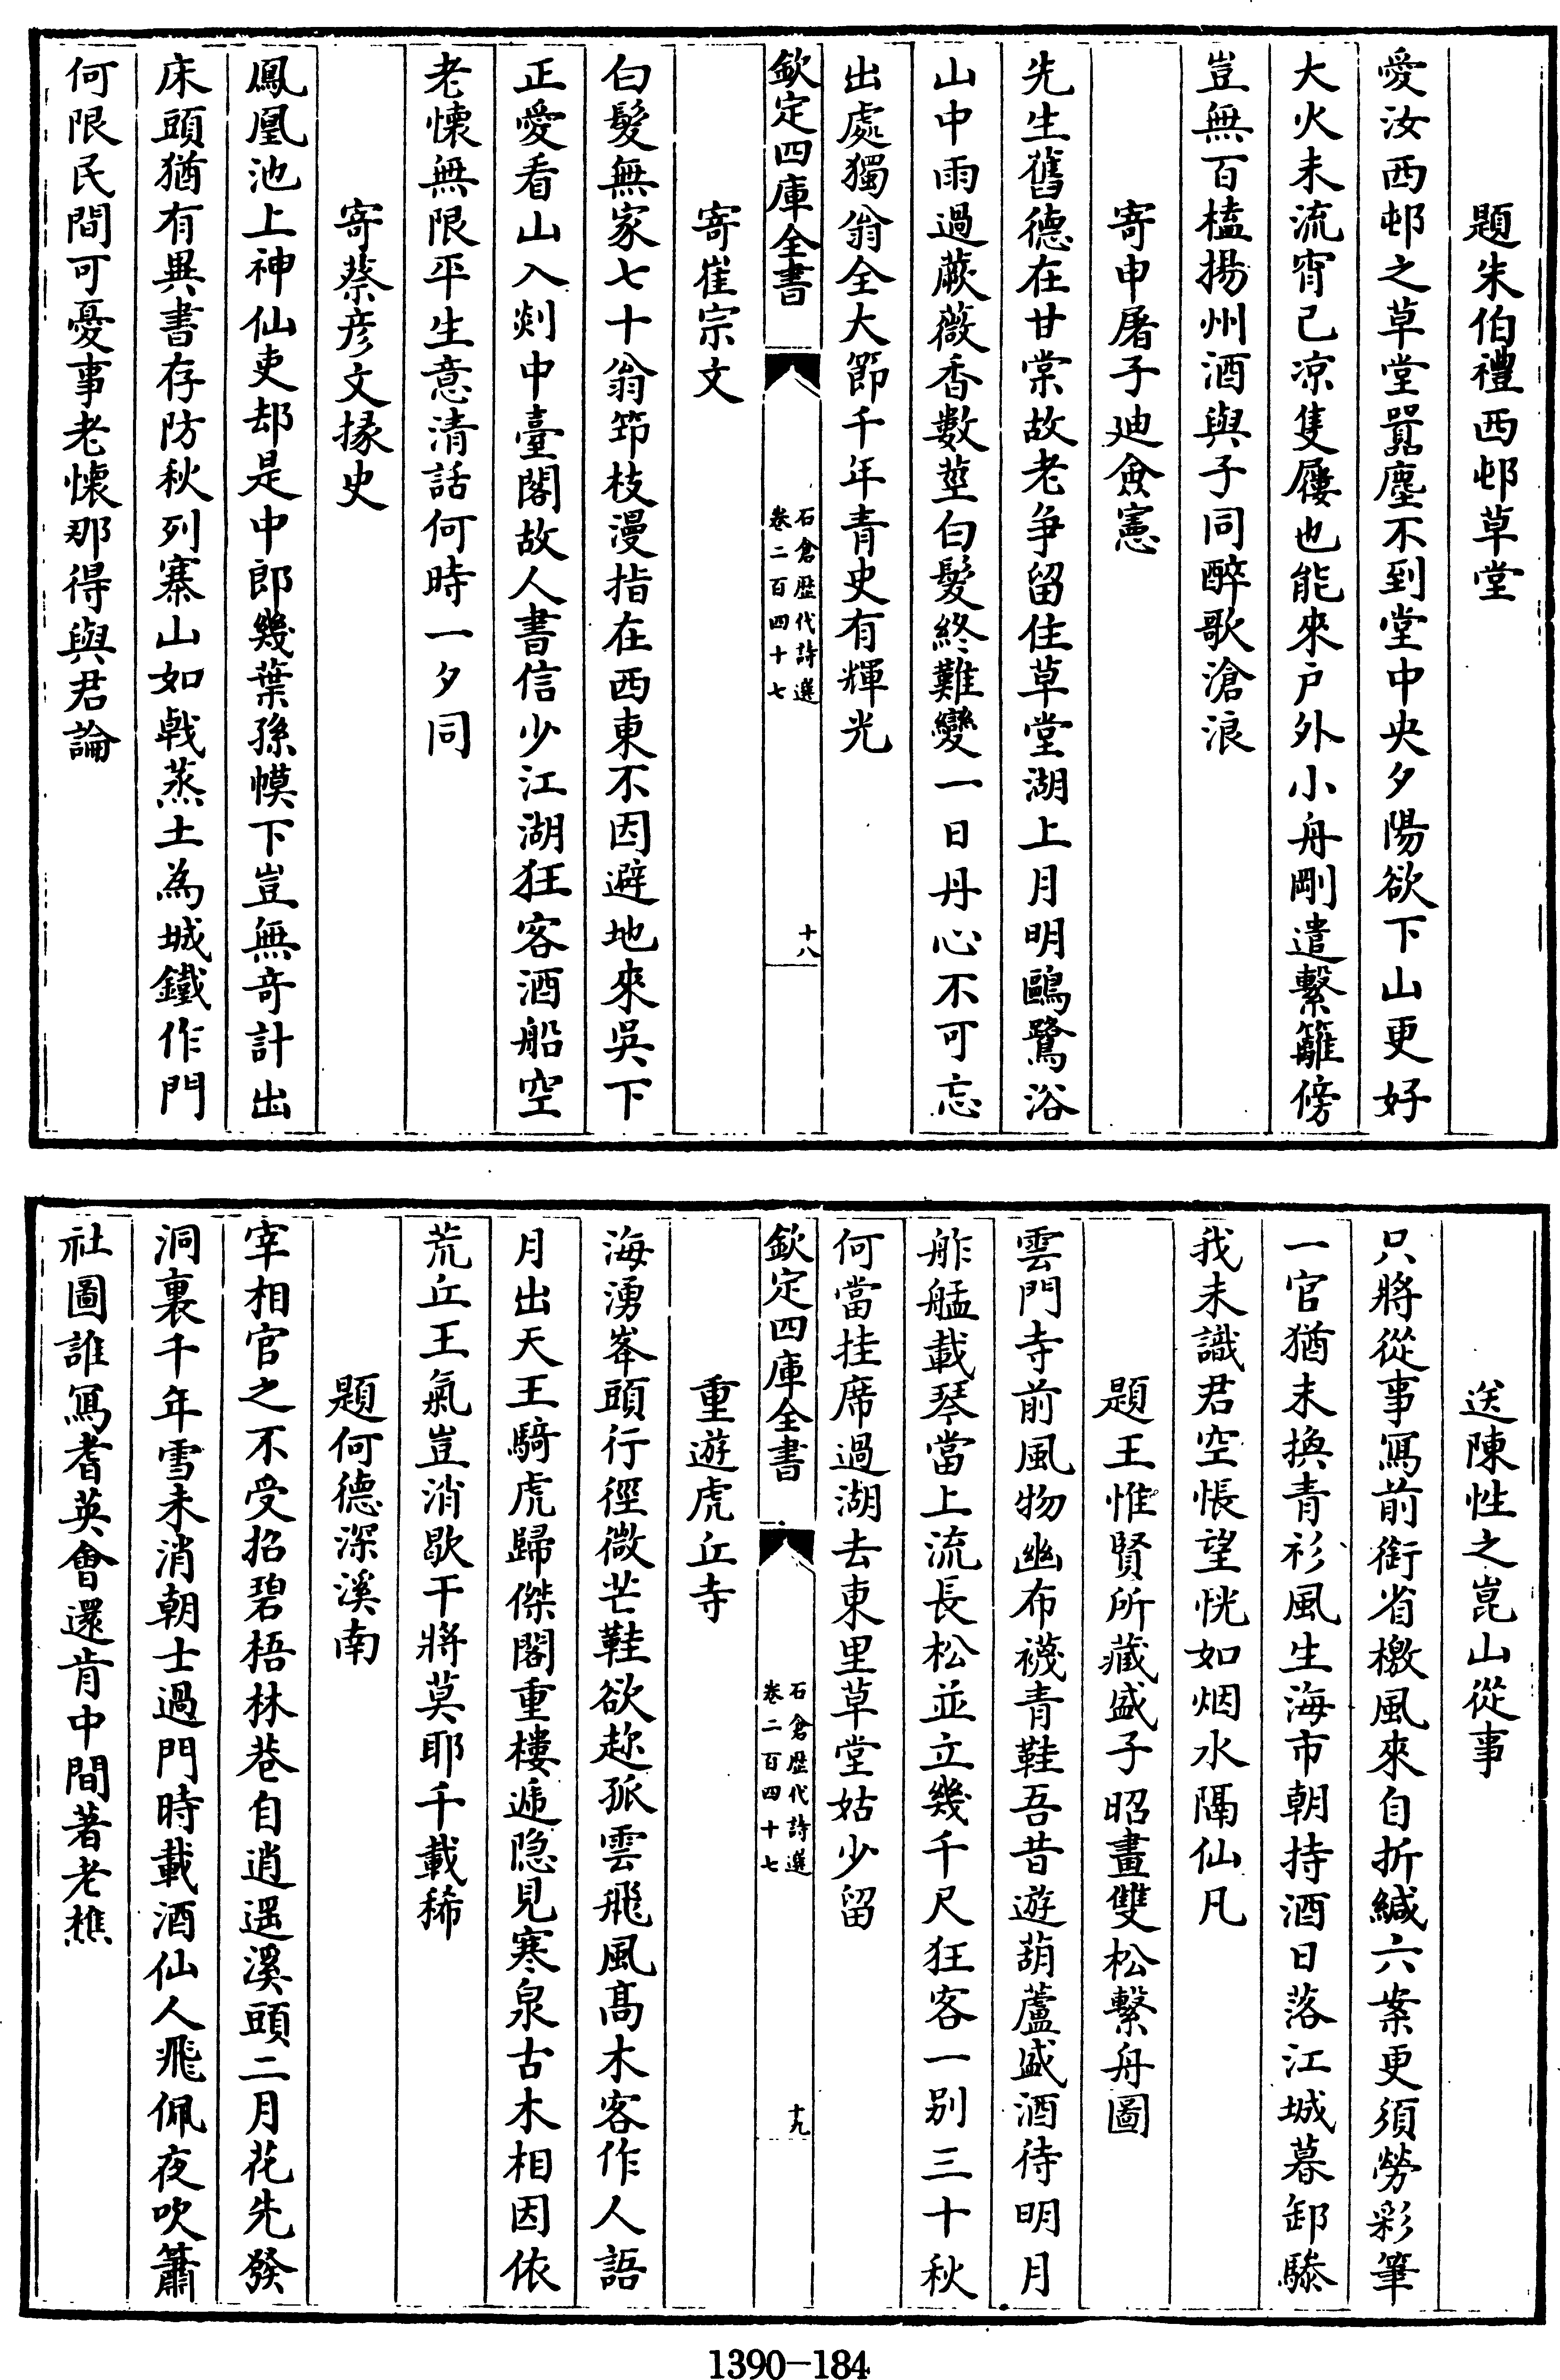 題朱伯禮西邨草堂
愛汝西邨之草堂囂塵不到堂中央夕陽欲下山更好
大火未流宵已凉隻屨也能來户外小舟剛遣繫籬傍
豈無百榼揚州酒與子同醉歌滄浪
寄申屠子廸僉憲
先生舊德在甘棠故老爭留住草堂湖上月明鷗鷺浴
山中雨過蕨薇香數莖白髮終難變一日丹心不可忘
出處獨翁全大節千年青史有輝光
欽定四庫全書
石倉歴代詩選
卷二百四十七
十八
寄崔宗文
白髮無家七十翁笻枝漫指在西東不因避地來吳下
正愛看山入剡中臺閣故人書信少江湖狂客酒船空
老懷無限平生意清話何時一夕同
寄蔡彦文掾史
鳳凰池上神仙吏却是中郎幾葉孫幙下豈無奇計出
床頭猶有異書存防秋列寨山如戟蒸土為城鐵作門
何限民間可憂事老懷那得與君論
送陳性之崑山從事
只將從事寫前銜省檄風來自折緘六案更須勞彩筆
一官猶未換青衫風生海市朝持酒日落江城暮卸驂
我未識君空悵望恍如烟水隔仙凡
題王惟賢所藏盛子昭畫雙松繫舟圖
雲門寺前風物幽布襪青鞋吾昔遊葫蘆盛酒待明月
舴艋載琴當上流長松並立幾千尺狂客一别三十秋
何當挂席過湖去東里草堂姑少留
欽定四庫全書
石倉歴代詩選
卷二百四十七
十九
重遊虎丘寺
海湧峯頭行徑微芒鞋欲趂孤雲飛風髙木客作人語
月出天王騎虎歸傑閣重樓遞隐見寒泉古木相因依
荒丘王氣豈消歇干將莫耶千載稀
題何德深溪南
宰相官之不受招碧梧林巷自逍遥溪頭二月花先發
洞裏千年雪未消朝士過門時載酒仙人飛佩夜吹簫
社圖誰寫耆英會還肯中間著老樵
1390-184